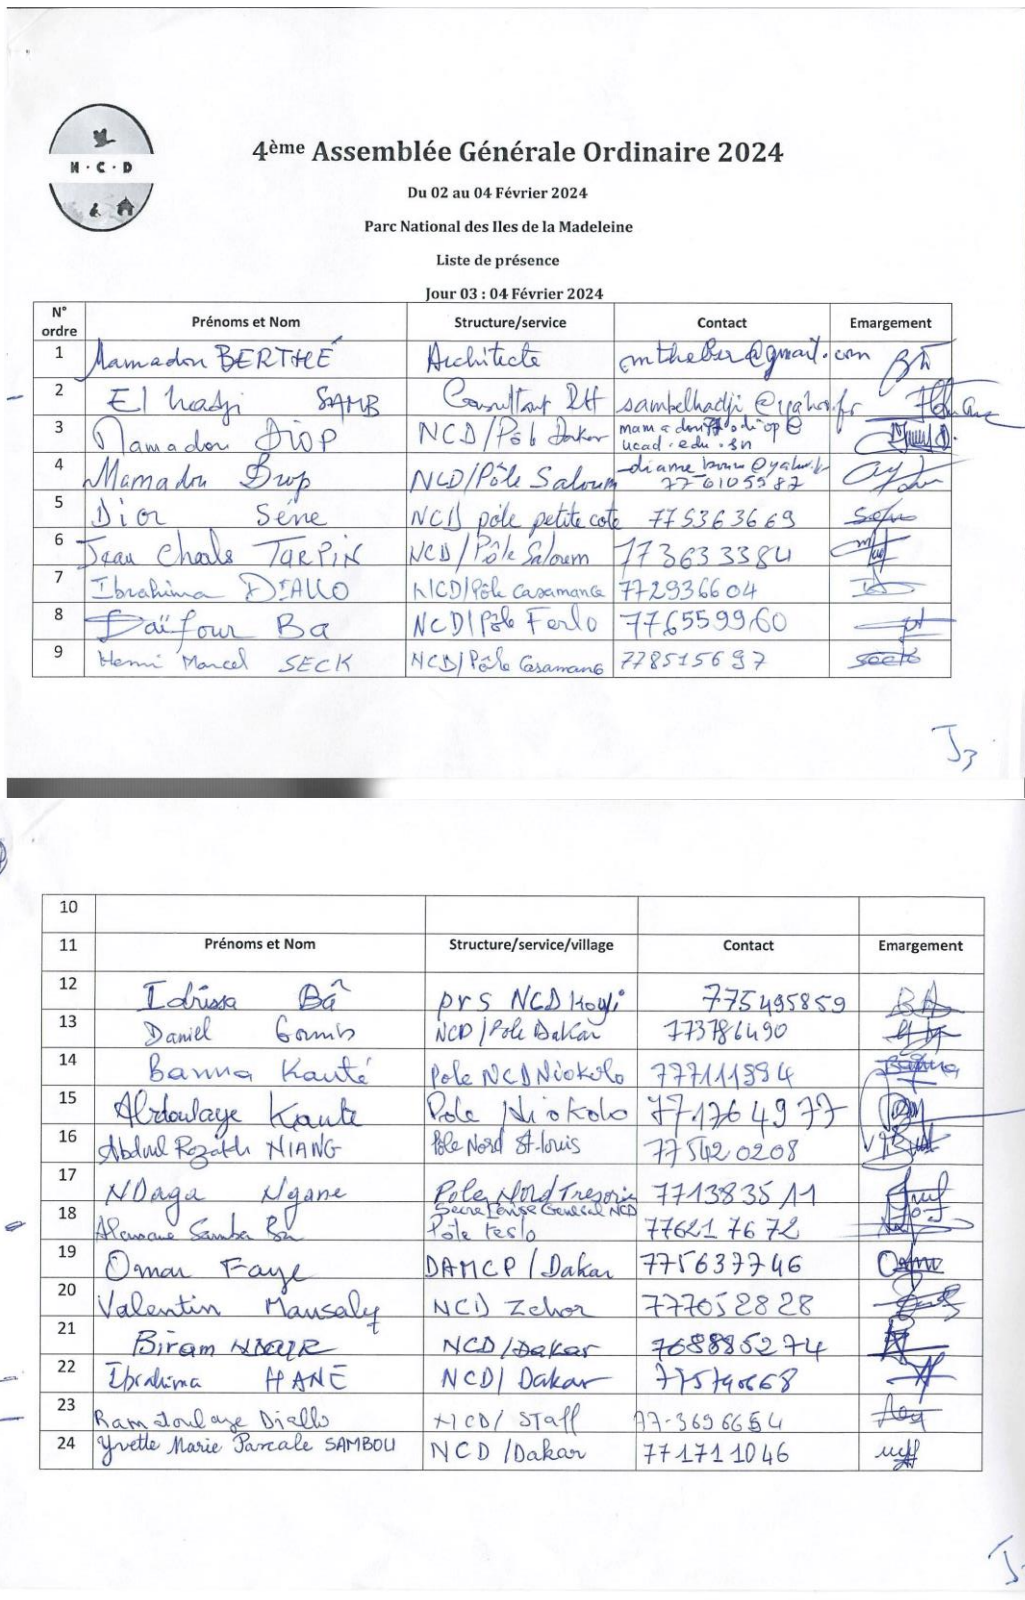 N · C · D
4ème Assemblée Générale Ordinaire 2024
Du 02 au 04 Février 2024
Parc National des Iles de la Madeleine
Liste de présence
Jour 03 : 04 Février 2024
N° ordre Prénoms et Nom Structure/service Contact Emargement
1 Mamadou BERTHÉ Architecte emtheber@gmail.com
2 El hadji SAMB Consultant RH sambelhadji@yahoo.fr
3 Mamadou DIOP NCD/Pôle Dakar
ucad.edu.sn
4 Mamadou Diop NCD/Pôle Saloum
5 Dior Séne NCD pôle petite cote 775363669
6 Jean Charls TURPIN NCD/Pôle Saloum 773633384
7 Ibrahima DIALLO NCD/Pôle Casamance 772936604
8 Daïfour Ba NCD/Pôle Ferlo 776559960
9 Henri Marcel SECK NCD/Pôle Casamance 778515697
J3
10
11 Prénoms et Nom Structure/service/village Contact Emargement
12 Idrissa Bâ prs NCD 775495859
13 Daniel Gomis NCD/Pole Dakar 773786490
14 Banna Kanté Pole NCD Niokolo 777111994
15 Abdoulaye Kante Pole Niokolo 771764977
16 Abdoul Razakh NIANG Pôle Nord St-louis 775420208
17 NDaga Ngane Pole Nord Tresorie 771383511
18 Alassane Samba Ba Pôle 776217672
19 Omar Faye DAMCP/Dakar 775637746
20 Valentin Mansaly NCD 777052828
21 Biram NCD/Dakar 768885274
22 Ibrahima HANE NCD/ Dakar
23 Ramatoulaye Diallo NCD/ Staff 77-3696654
24 Yvette Marie Pascale SAMBOU NCD/Dakar 771711046